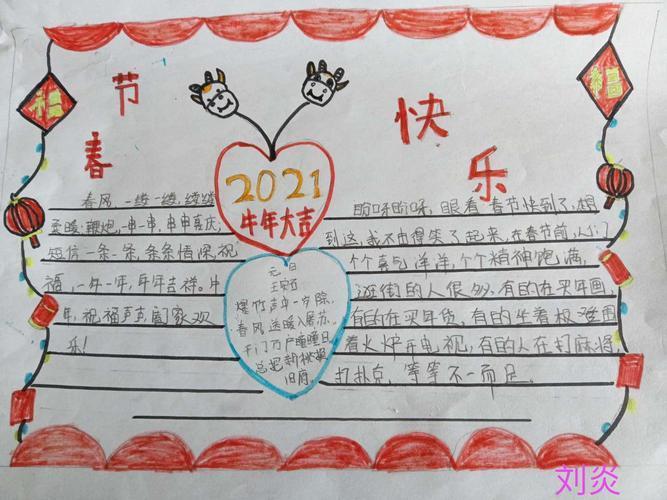 春节
快乐
福
福
2021
牛年大吉
春风,一缕一缕,缕缕
柔暖,鞭炮,一串一串,串串喜庆;
短信一条一条,条条情深,祝
福,一年一年,年年吉祥。牛
年,祝福声声,阖家欢
乐!
元日
王安石
爆竹声中一岁除,
春风送暖入屠苏.
千门万户曈曈日
总把新桃换
旧符.
盼呀盼呀,眼看春节快到了,想
到这,我不由得笑了起来,在春节前,人们
个个喜气洋洋,个个精神饱满,
逛街的人很多,有的在买年画,
有的在买年货,有的坐着板凳围
着火炉看电视,有的人在打麻将,
打扑克,等等不一而足.
刘炎